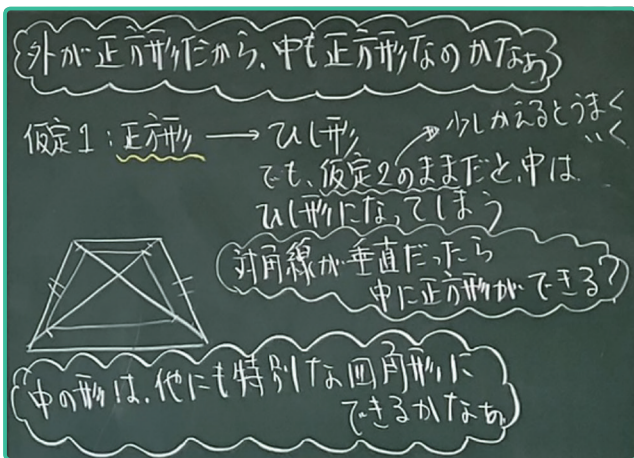 外が正方形だから、中も正方形なのかなぁ
仮定1：正方形 → ひし形
少しかえるとうまく
いく
でも、仮定2のままだと、中は
ひし形になってしまう
対角線が垂直だったら
中に正方形ができる？
中の形は、他にも特別な四角形に
できるかなぁ